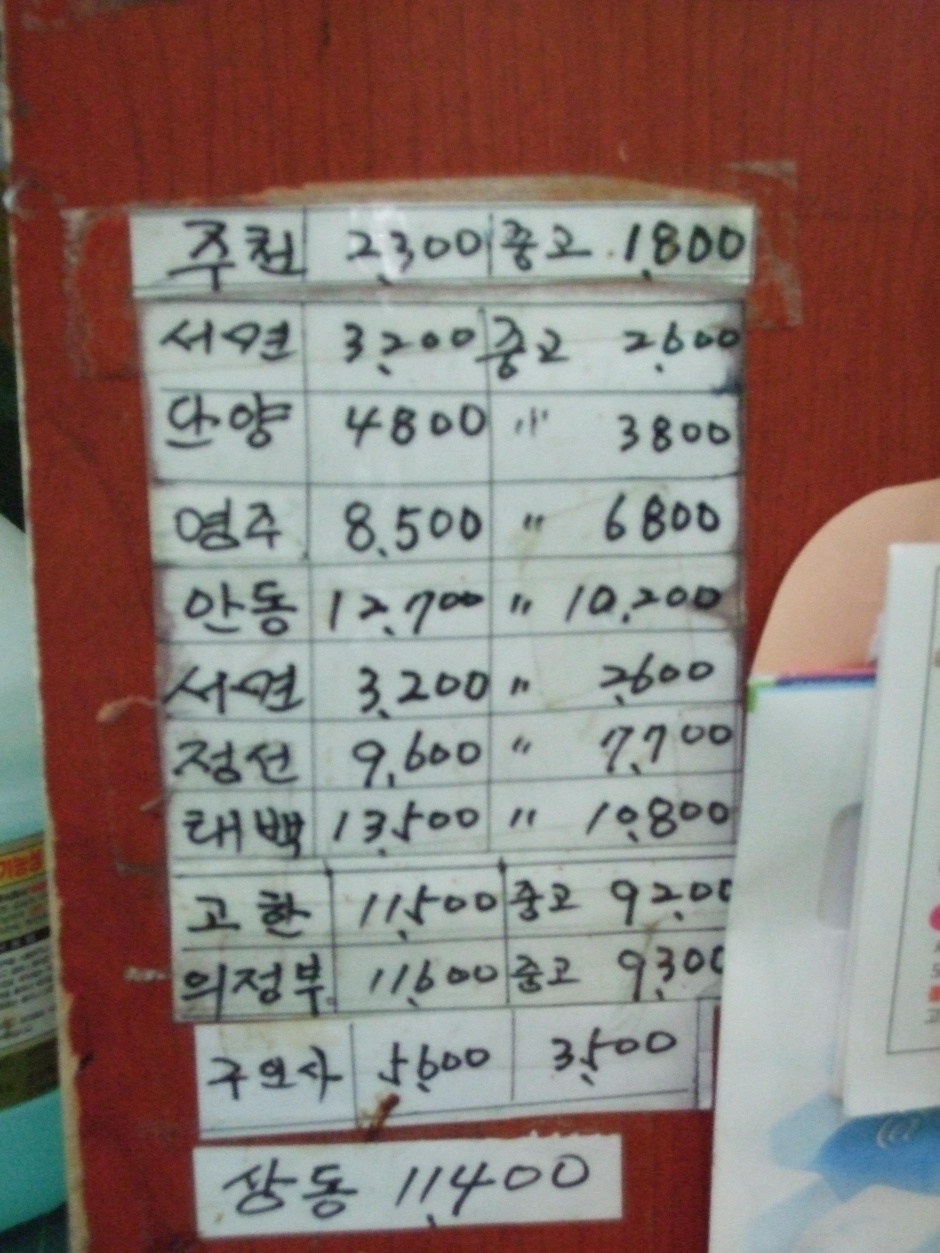 주천 2,300 중고 1,800
서면 3,200 중고 2,600
단양 4800 〃 3800
영주 8,500 〃 6800
안동 12,700 〃 10,200
서면 3,200 〃 2,600
정선 9,600 〃 7,700
태백 13,500 〃 10,800
고한 11,500 중고 9,200
의정부 11,600 중고 9,300
구인사 5,600 3,500
상동 11,400
기능성